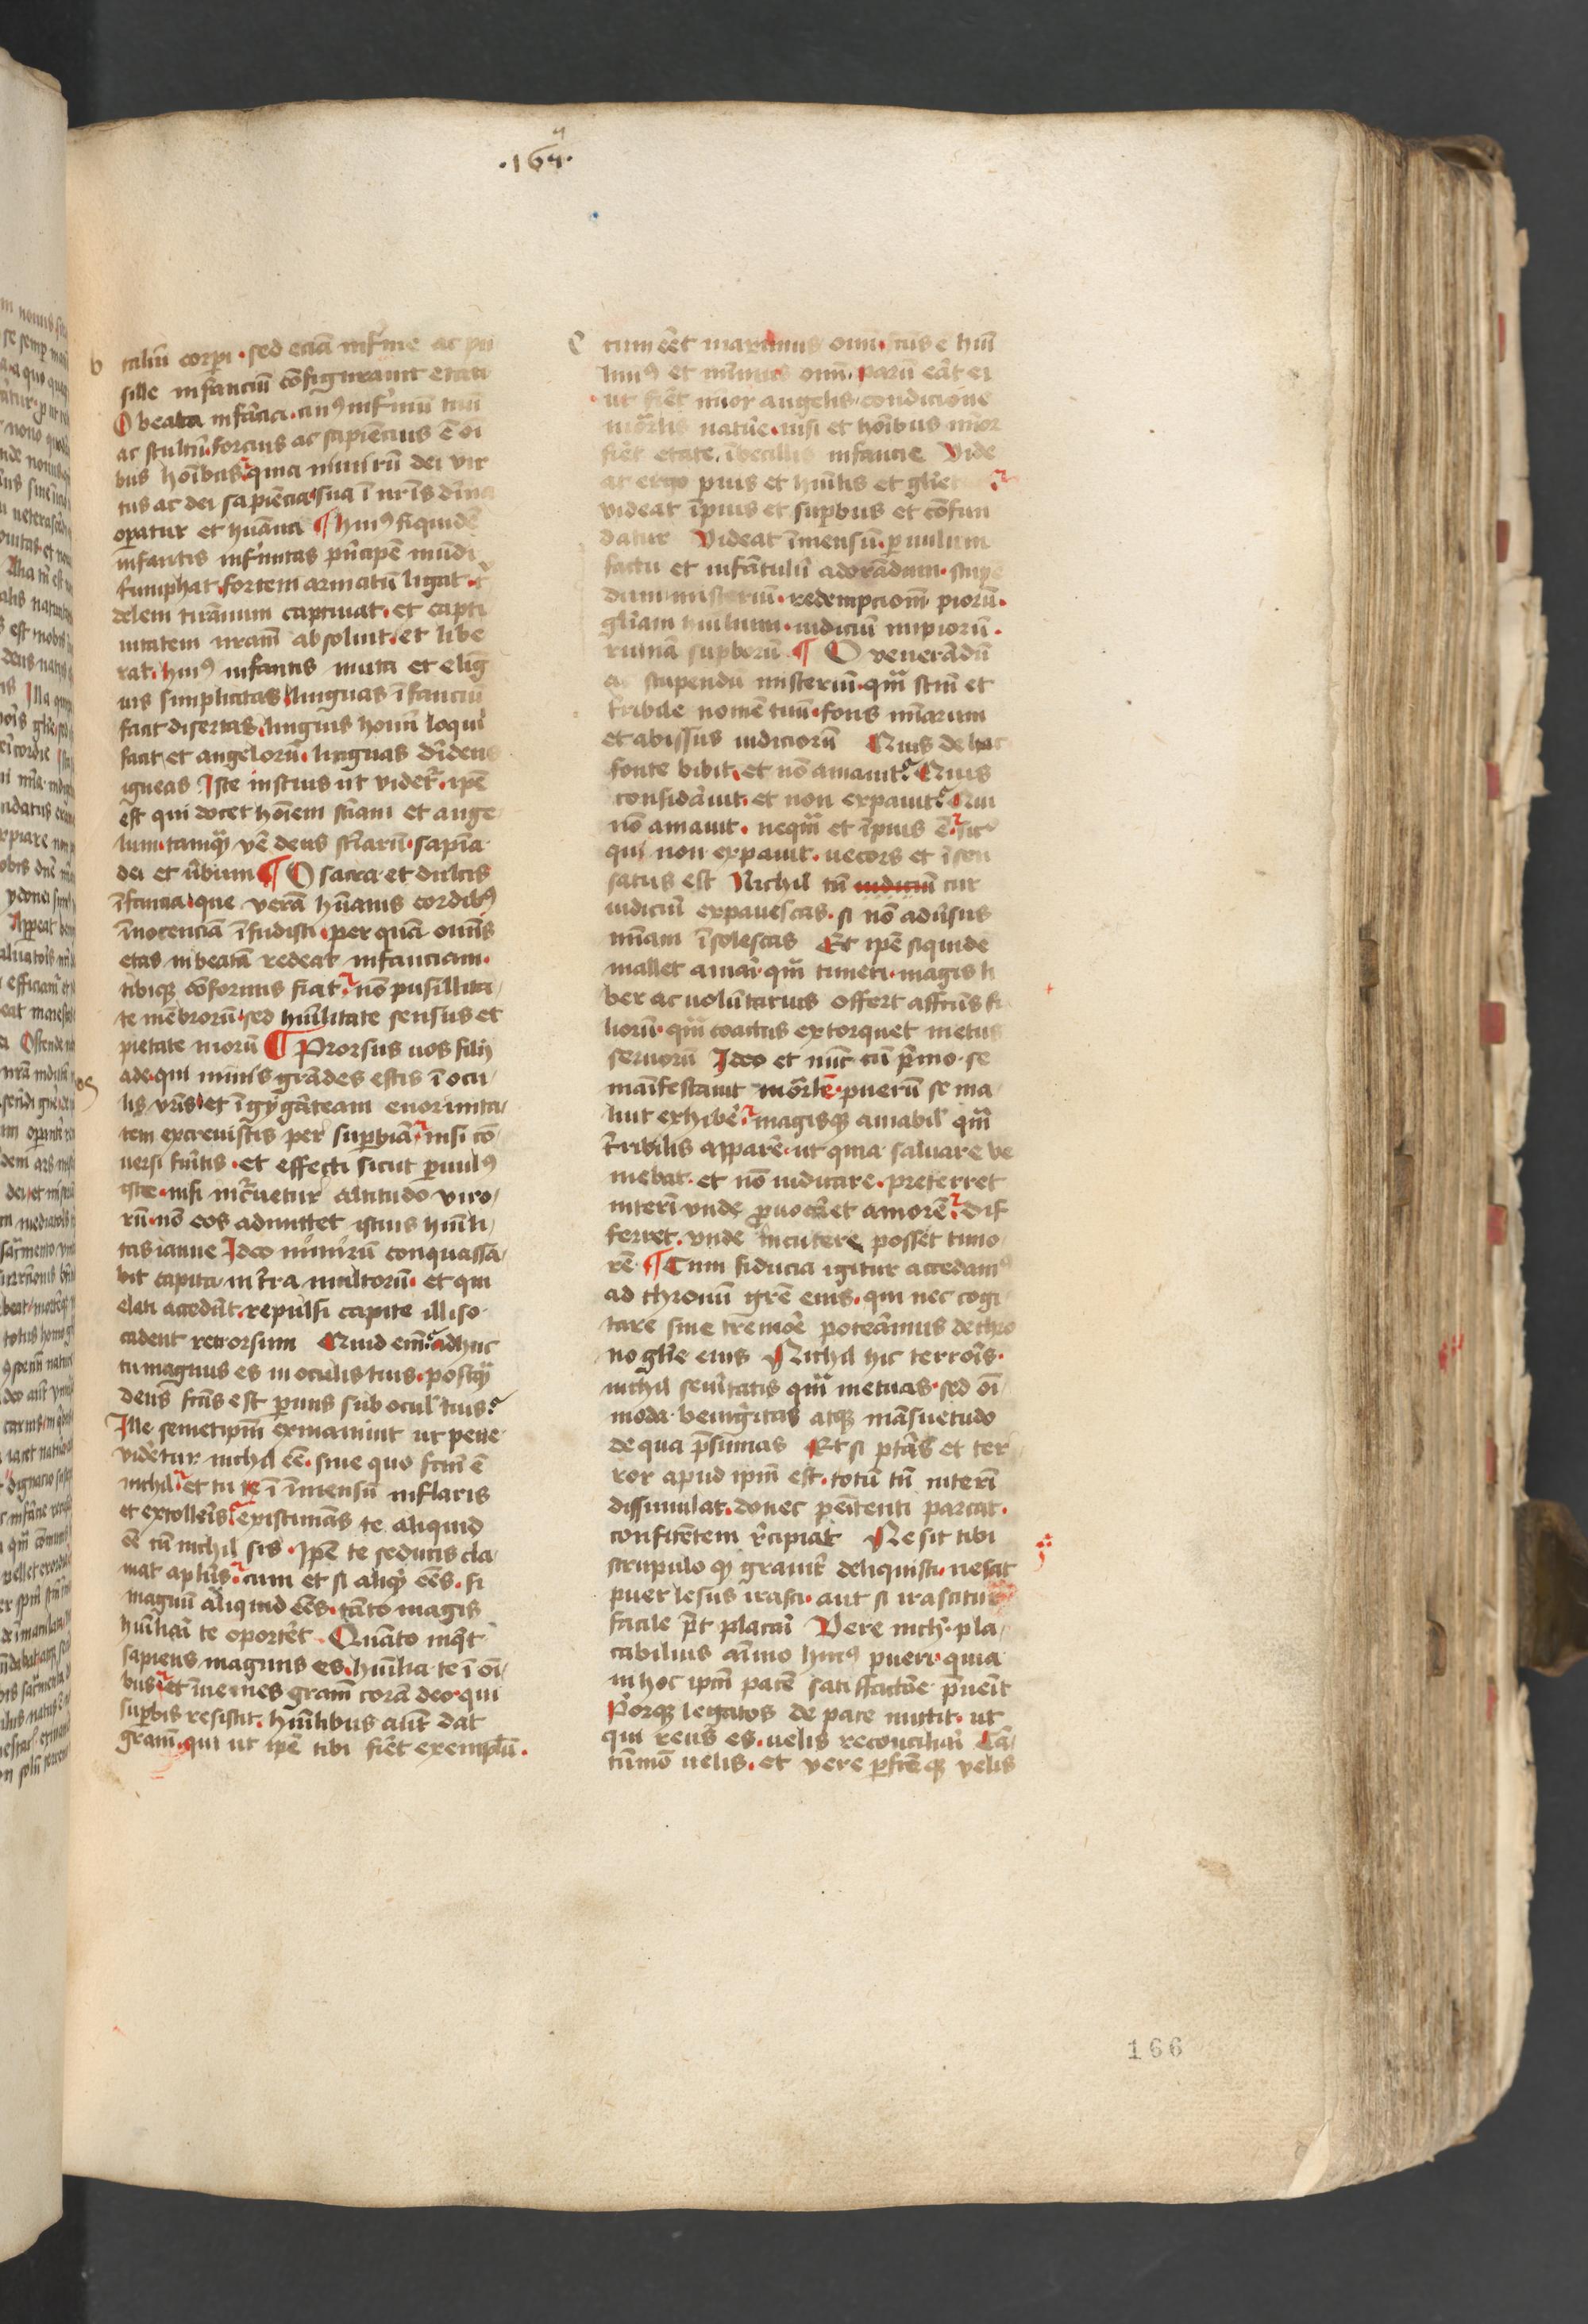 .164.
b
taliū corp̄i · sed eciā infirme ac pu
sille infanciū cōfigurauit etati
O beata infācia · cui9 infirmū
ac stultū forcius ac sapiēcius ē oī
bus hoībus quia nimirū dei vir
tus ac dei sapiēcia sua ī nr̄is dīna
oꝑatur et huāna ¶ hui9 siquidē
infantis infirmitas pn̄cipē mūdi
fortem armatū ligat ·
delem tirānum captiuat · et capti
uitatem nrām absoluit · et libe
rat · hui9 infantis muta et elīg
uis simplicitas linguas īfanciū
facit disertas linguis hoīm loqui
facit et angelorū · linguas dīdens
igneas Iste inscius ut videt̄ · ip̄e
est qui docet hoīem sciam et ange
lum · tamqꝫ vē deus sciarū · sapīa
dei et v̄bum ¶ O sacra et dulcis
īfancia · que verā hūanis cordib9
īnocenciā īfudisti · per quā omīs
etas in beatā redeat infanciam ·
tibiqꝫ cōformis fiat · nō pusillita
te mēbrorū sed hūilitate sensus et
pietate morū ¶ Prorsus uos filij
ade · qui nimis grādes estis ī ocu
lis vr̄is et ī gygāteam enormita
tem excreuistis per supbiā · nisi cō
uersi fuītis · et effecti sicut ꝑuul9
iste · nisi incuruetur altitudo viro
rū · nō eos admittet istius hūili
tas ianue Ideo nimirū conquassa
bit capita in tr̄a multorū · et qui
elati accedūt · repulsi capite illiso
cadent retrorsum Quid eīm adhuc
tu magnus es in oculis tuis · postqꝫ
deus fcūs est ꝑuus sub ocul' tuis
Ille semetipm̄ exinaniuit ut pene
videretur nichil ēe · sine quo fcm̄ ē
nichil · et tu te ī īmensū inflaris
et extolleris existimās te aliquid
ēe cū nichil sis · Ip̄e te seducis cla
mat apl̄us · cum et si aliqꝫ ēes · si
magnū aliquid ēes · tāto magis
hūiliari te oportet · Quāto inqͥt
sapiens magnus es · hūilia te ī oī
bus · et īuenies grām corā deo · qui
supbis resistit · hūilibus aūt dat
grām · qui ut ip̄e tibi fiēt exemplū ·
c
tum ēet maximus oīm · hūi
lim9 et minimus oīm · parū ēat ei
ut fiēt mīor angelis · condicione
mortalis natūe · nisi et hoībus mīor
fiēt etate · ībecillis infancie Vide
at ergo pius et hūilis et gl̄iet
videat īpius et supbus et cōfun
datur Videat īmensū · ꝑuulum
factū et infātulū adorādum · stupe
dum misteriū · redempcionē piorū ·
gl̄iam hūiliū · iudiciū impiorū ·
ruinā supborū ¶ O venerādū
ac stupendū misteriū · qm̄ scm̄ et
t̄ribile nomē tuū · fons mīarum
et abissus iudiciorū Quis de hac
fonte bibit · et nō amauit · Quis
considāuit · et non expauit Qui
nō amauit · nequā et īpius ē · sic
qui non expauit · uecors et īsen
satus est Nichil tn̄ iudiciū cur
iudiciū expauescas · si nō aduersus
mīam īsolescas Et ip̄e siquidē
mallet amari qm̄ timeri · magis li
ber ac uolūtarius offert affctus fi
liorū · qm̄ coactus extorquet metus
seruorū Ideo et nūc cū p̄mo se
manifestauit mortē · puerū se ma
luit exhibē magisqꝫ amabil' qm̄
t̄ribilis apparē · ut quia saluare ve
niebat · et nō iudicare · preferret
interī vnde ꝓuocāet amorē · dif
ferret · vnde incutere posset timo
rē ¶ Cum fiducia igitur accedam9
ad thronū grē eius · qui nec cogi
tare sine tremoē poteāmus de thro
no gl̄ie eius Nichil hic terrois ·
nichil seuītatis qm̄ metuas · sed oī
moda · benignitas atqꝫ māsuetudo
de qua p̄sumas Et si ptās et ter
ror apud ipm̄ est · totū tn̄ interī
dissimulat · donec peitenti parcat ·
confitētem r̄cipiat Ne sit tibi
scrupulo qꝫ grauit̄ deliquisti · nescit
puer Iesus irasci · aut si irascitur
facile p̄t placari Vere nich' · pla
cabilius aīmo hui9 pueri · quia
in hoc ipm̄ patē satisfactōe p̄ueīt
Porqꝫ legatos de pace mittit · ut
qui reus es · uelis reconciliari Tā
tūmō uelis · et vere ꝑfcēqꝫ velis
166